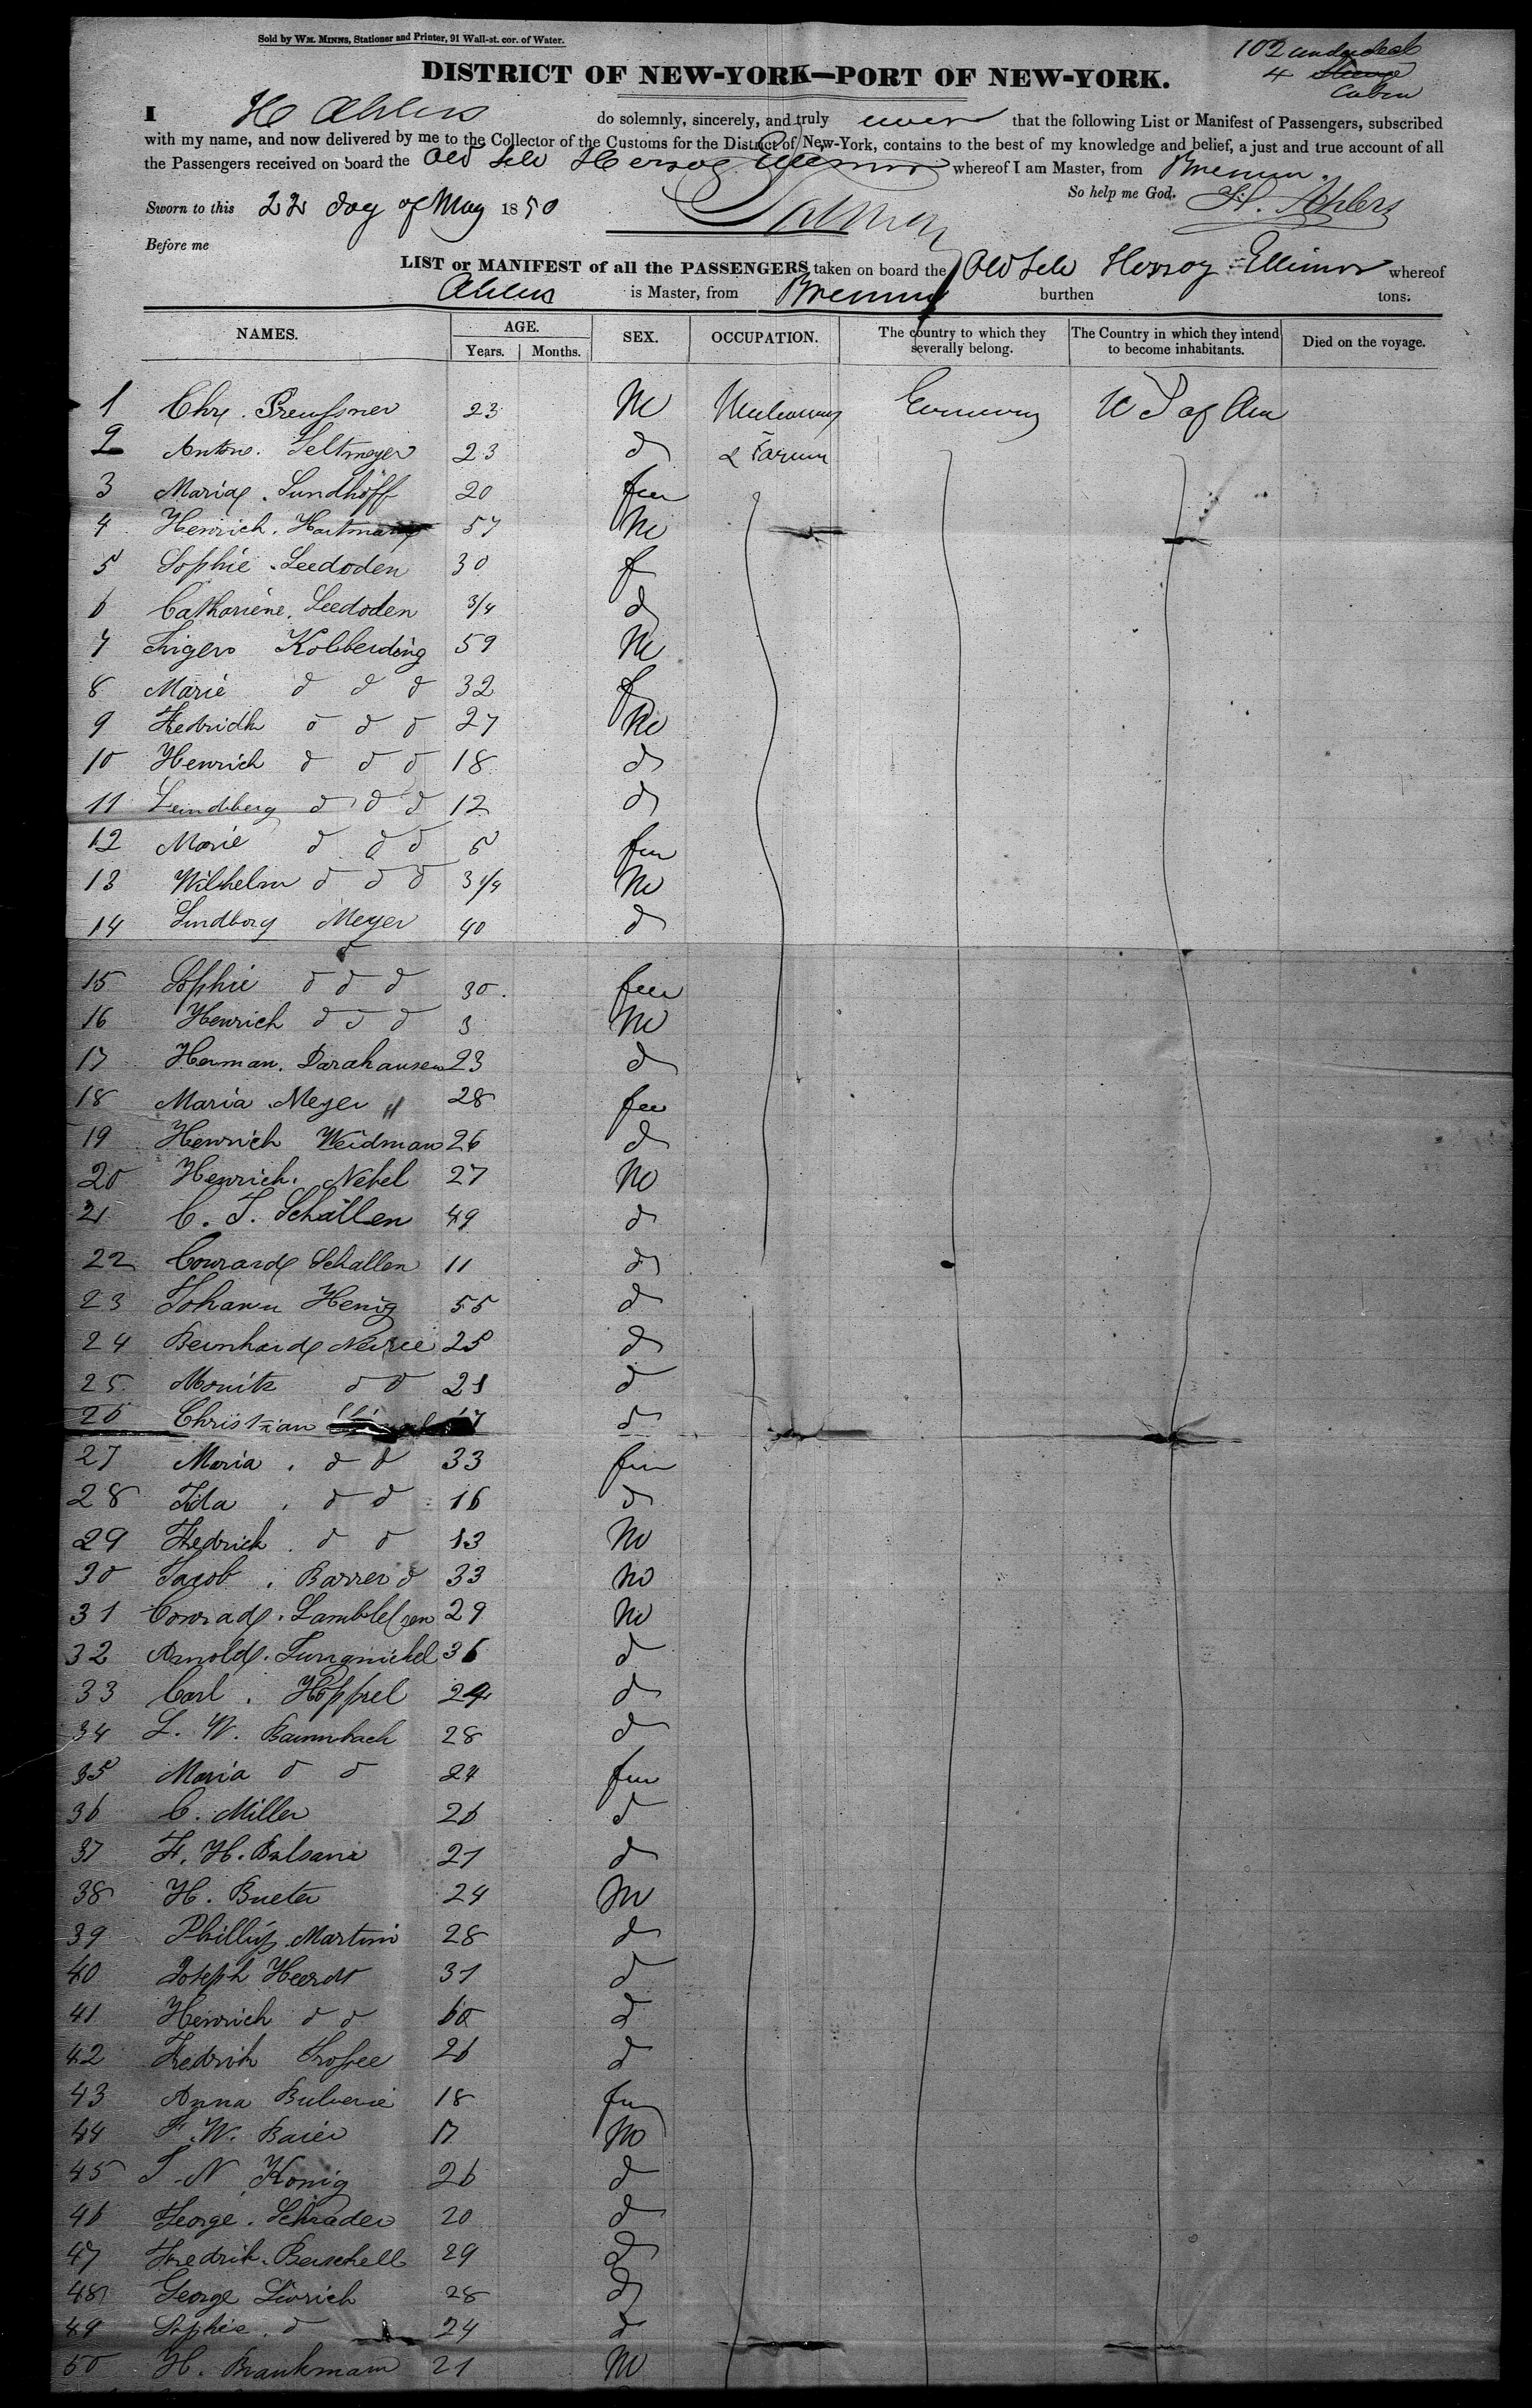 Sold by WM. MINNS, Stationer and Printer, 91 Wall-st. cor. of Water.
102 underdeck
4 Cabin
DISTRICT OF NEW-YORK—PORT OF NEW-YORK.
I H Ahlers do solemnly, sincerely, and truly swear that the following List or Manifest of Passengers, subscribed
with my name, and now delivered by me to the Collector of the Customs for the District of New-York, contains to the best of my knowledge and belief, a just and true account of all
the Passengers received on board the Old whereof I am Master, from Bremen.
So help me God. H. Ahlers
Sworn to this 22 day of May 1850
Before me
LIST or MANIFEST of all the PASSENGERS taken on board the Old Herzog whereof
Ahlers is Master, from Bremen burthen tons.
NAMES. AGE. SEX. OCCUPATION. The country to which they severally belong. The Country in which they intend to become inhabitants. Died on the voyage.
Years. Months.
1 Chr. Preussner 23 M Germany U S of Am
2 Anton. Seltmeyer 23 d & Farmer
3 Maria. Sundhoff 20 fem
4 Henrich. Hartman 57 M
5 Sophie. Leedoden 30 f
6 Catharine. Leedoden 3/4 d
7 Kolberding 59 M
8 Marie d d d 32 f
9 Fredridk d d d 27 M
10 Henrich d d d 18 d
11 d d d 12 d
12 Marie d d d 5 fem
13 Wilhelm d d d 3 1/4 M
14 Meyer 40 d
15 Sophie d d d 30 fem
16 Henrich d d d 3 M
17 Herman. Darahausen 23 d
18 Maria Meyer " 28 fem
19 Henrich Weidman 26 d
20 Henrich. Nebel 27 M
21 C. F. Schallen 49 d
22 Conrad Schallen 11 d
23 Johann Henig 55 d
24 Bernhard 25 d
25 Moritz d d 21 d
26 Christian 17 d
27 Maria. d d 33 fem
28 Ida. d d 16 d
29 Fredrich. d d 13 M
30 Jacob. Barrer d 33 M
31 Conrad. 29 M
32 Arnold. 36 d
33 Carl. Höppel 24 d
34 L. W. Baumbach 28 d
35 Maria d d 24 fem
36 C. Miller 26 d
37 F. H. 21 d
38 H. Bueter 24 M
39 Phillip Martini 28 d
40 Joseph Heerdt 31 d
41 Heinrich d d 60 d
42 Fredrik 26 d
43 Anna 18 fem
44 F. W. Baier 17 M
45 J. N. Konig 26 d
46 George. Schrader 20 d
47 Fredrik. Beischell 29 d
48 George 28 d
49 Sophie. d 24 d
50 H. Brankmann 21 M